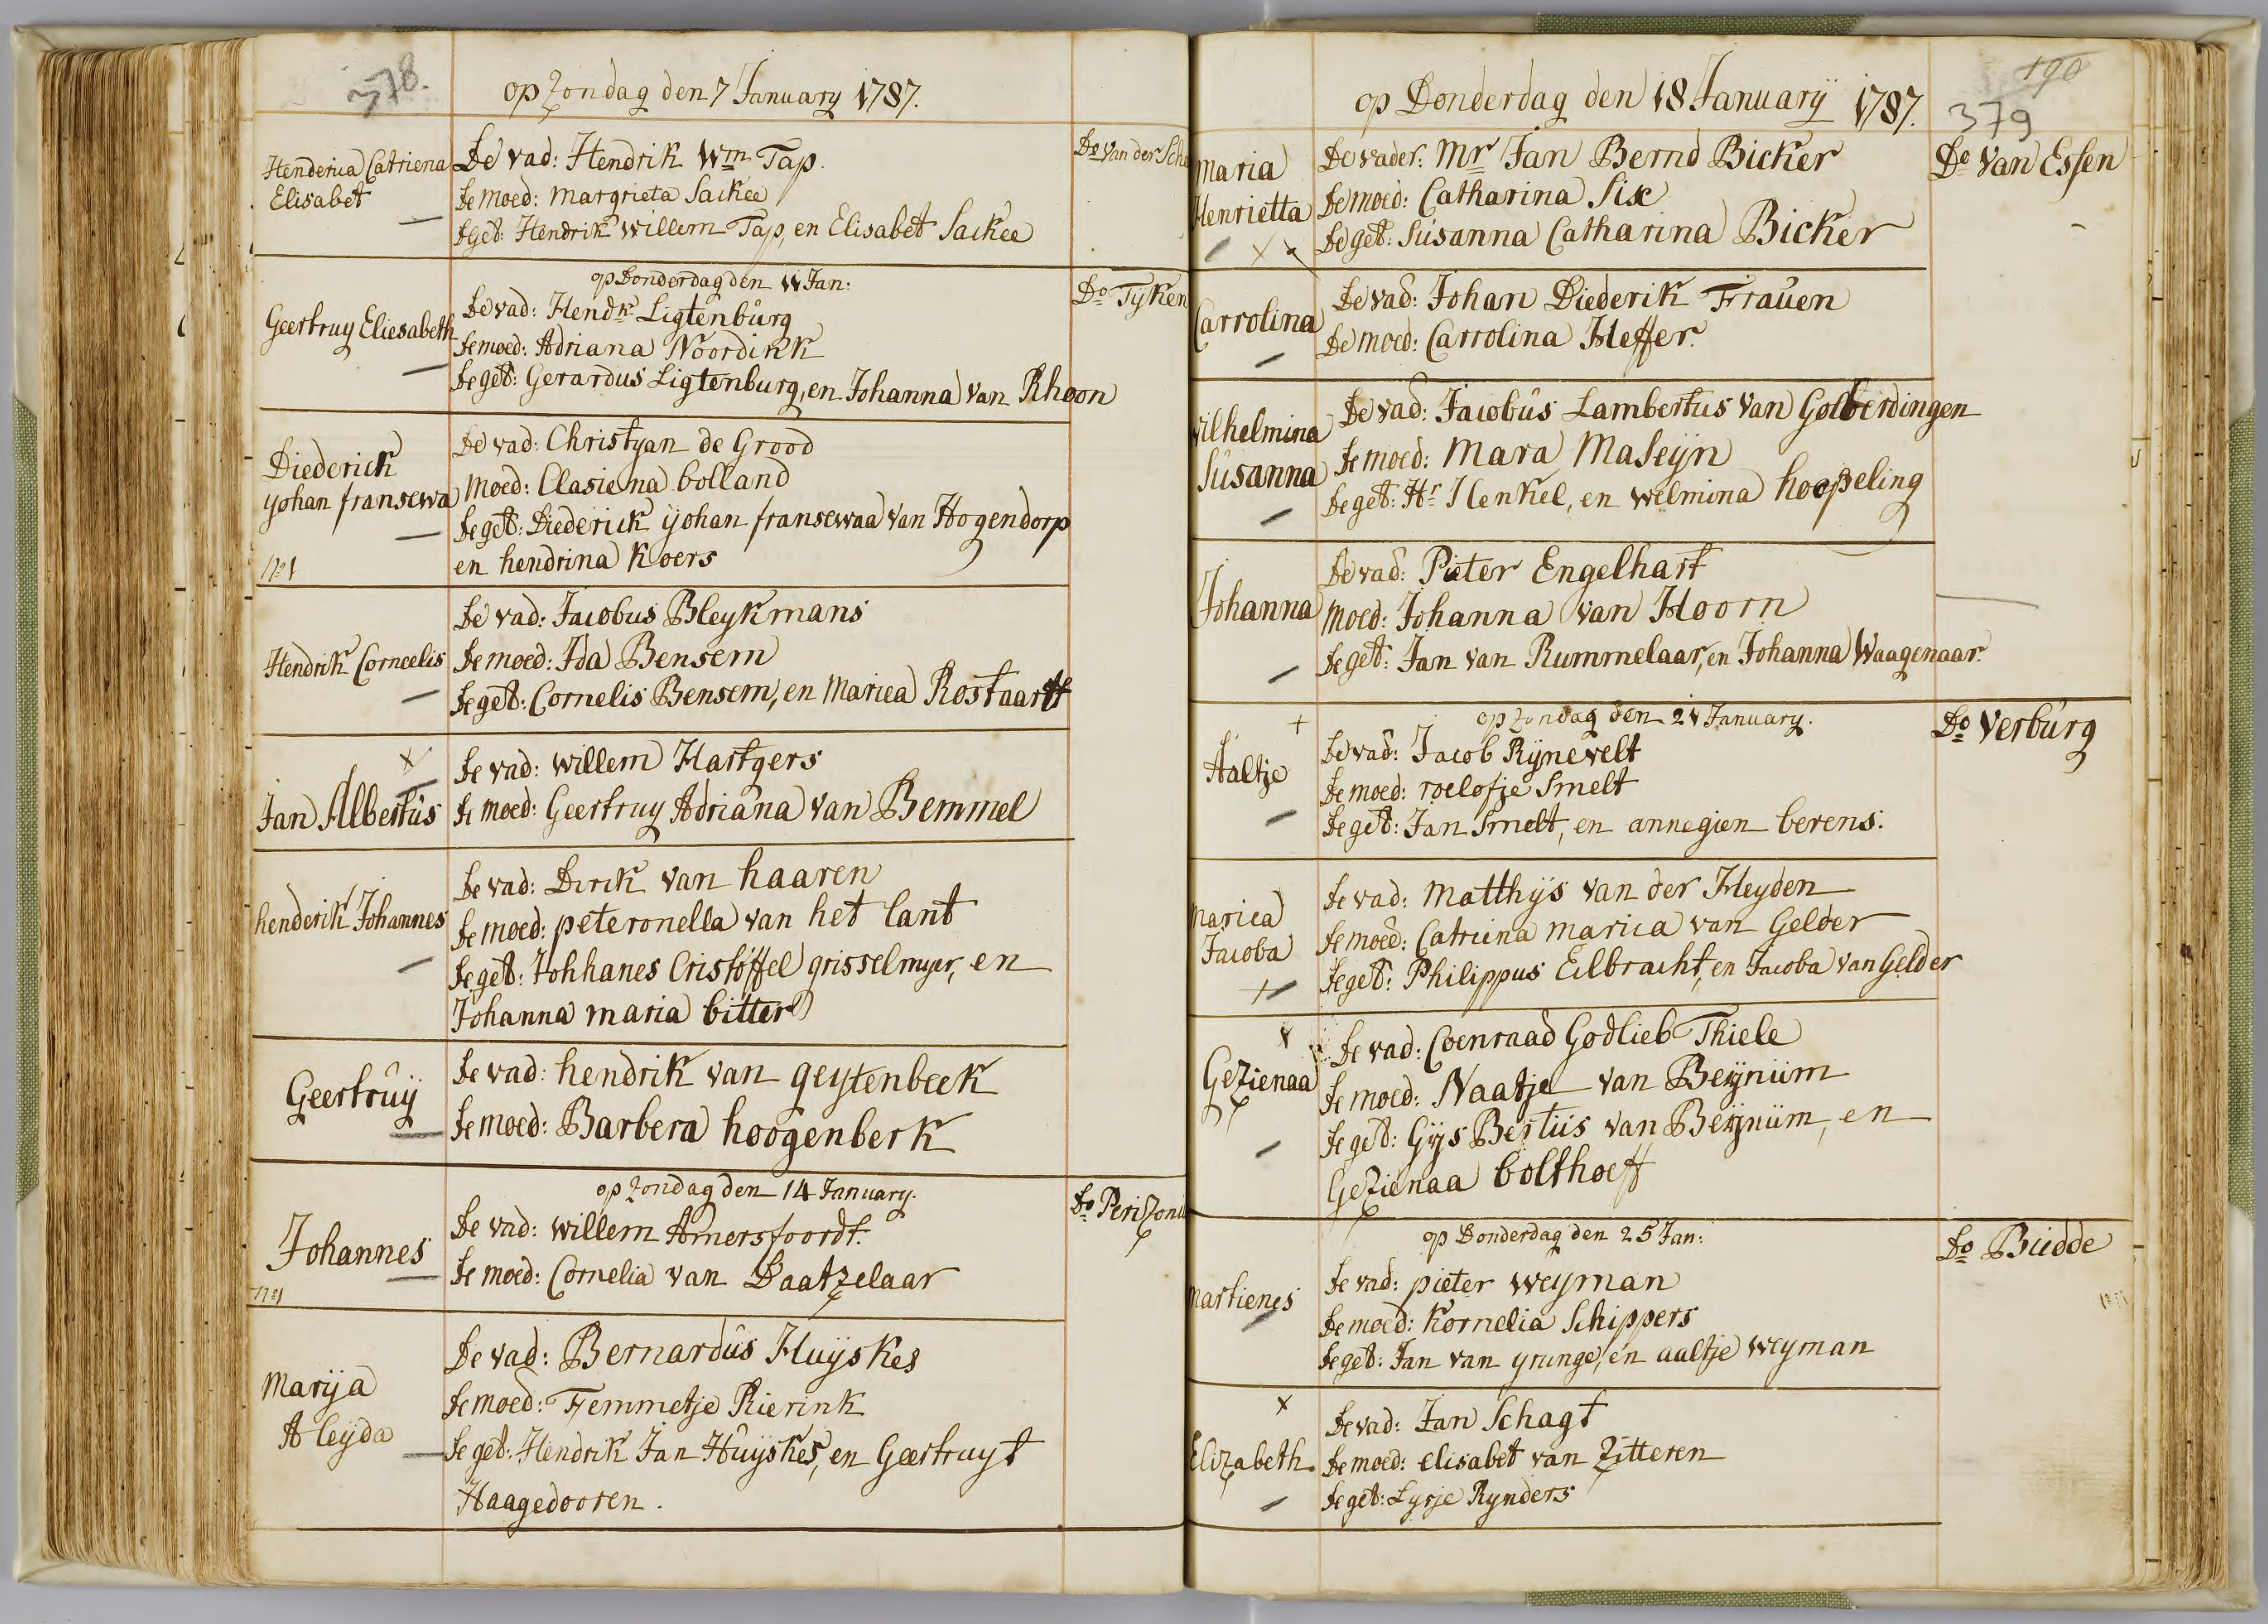 378.
op Zondag den 7 January 1787.
Henderica Catriena
Elisabet
De vad: Hendrik Wm Tap.
De moed: margrieta Saikee
de Get: Hendrik Willem Tap, en Elisabet Saikee
Do Van der
op Donderdag den 11 Jan:
Do Tyken
Geertruy Eliesabeth
De vad: Hendk Ligtenburg
De moed: Adriana Noordink
de get: Gerardus Ligtenburg, en Johanna Van Rhoon
Diederick
yohan fransewa
No 1
De vad: Christyan de Grood
moed: Clasiena bolland
de get: Diederick ÿohan fransewaa Van Hogendorp
en hendrina Koers
Hendrik Corneelis
De vad: Jacobus Bleykmans
De moed: Ida Bensem
de get: Cornelis Bensem, en Mariea Rostaart
Jan Albertus
De vad: willem Hartgers
de moed: Geertruy Adriana van Bemmel
henderik Johannes
De vad: Dirk van haaren
de moed: peteronella van het lant
de get: Johhanes Cristoffel grisselmyer, en
Johanna maria bitter
Geertruÿ
de vad: hendrik van geytenbeek
de moed: Barbera hoogenberk
op Zondag den 14 January.
Johannes
No 1
De vad: willem Amersfoordt.
de moed: Cornelia van Daatzelaar
Marija
Aleÿda
De vad: Bernardus Huÿskes
de moed: Femmetje Rierink
de get: Hendrik Jan Huÿskes, en Geertruyt
Haagedooren.
190
379
op Donderdag den 18 Januarÿ 1787.
Maria
Henrietta
De vader: Mr Jan Bernd Bicker
De moed: Catharina Six
De get: Susanna Catharina Bicker
Do Van Essen
Carrolina
De vad: Johan Diederik Frauen
De moed: Carrolina Heffer.
Wilhelmina
Susanna
De vad: Jacobus Lambertus van Golberdingen
de moed: Mara Maseÿn
de get: Hr Henkel, en welmina hoopeling
Johanna
De vad: Pieter Engelhart
moed: Johanna van Hoorn
de get: Jan van Rummelaar, en Johanna Waagenaar.
op Zondag den 21 January.
Do Verburg
Aaltje
De vad: Jacob Rÿnevelt
De moed: roelofje Smelt
de get: Jan Smelt, en annegien berens.
Mariea
Jacoba
de vad: Matthÿs van der Heyden
de moed: Catriena mariea van Gelder
de get: Philippus Eilbracht, en Jacoba van Gelder
Gezienaa
de vad: Coenraad Godlieb Thiele
de moed: Naatje van Beÿnum
de get: Gÿs Bertus van Beÿnum, en
Gezienaa bolthoeff
op Donderdag den 25 Jan:
Do Budde
Martienes
de vad: pieter weyman
de moed: Kornelia Schippers
de get: Jan van grunge, en aaltje weyman
Elizabeth
De vad: Jan Schagt
de moed: elisabet van Zitteren
de get: Lysje Rynders